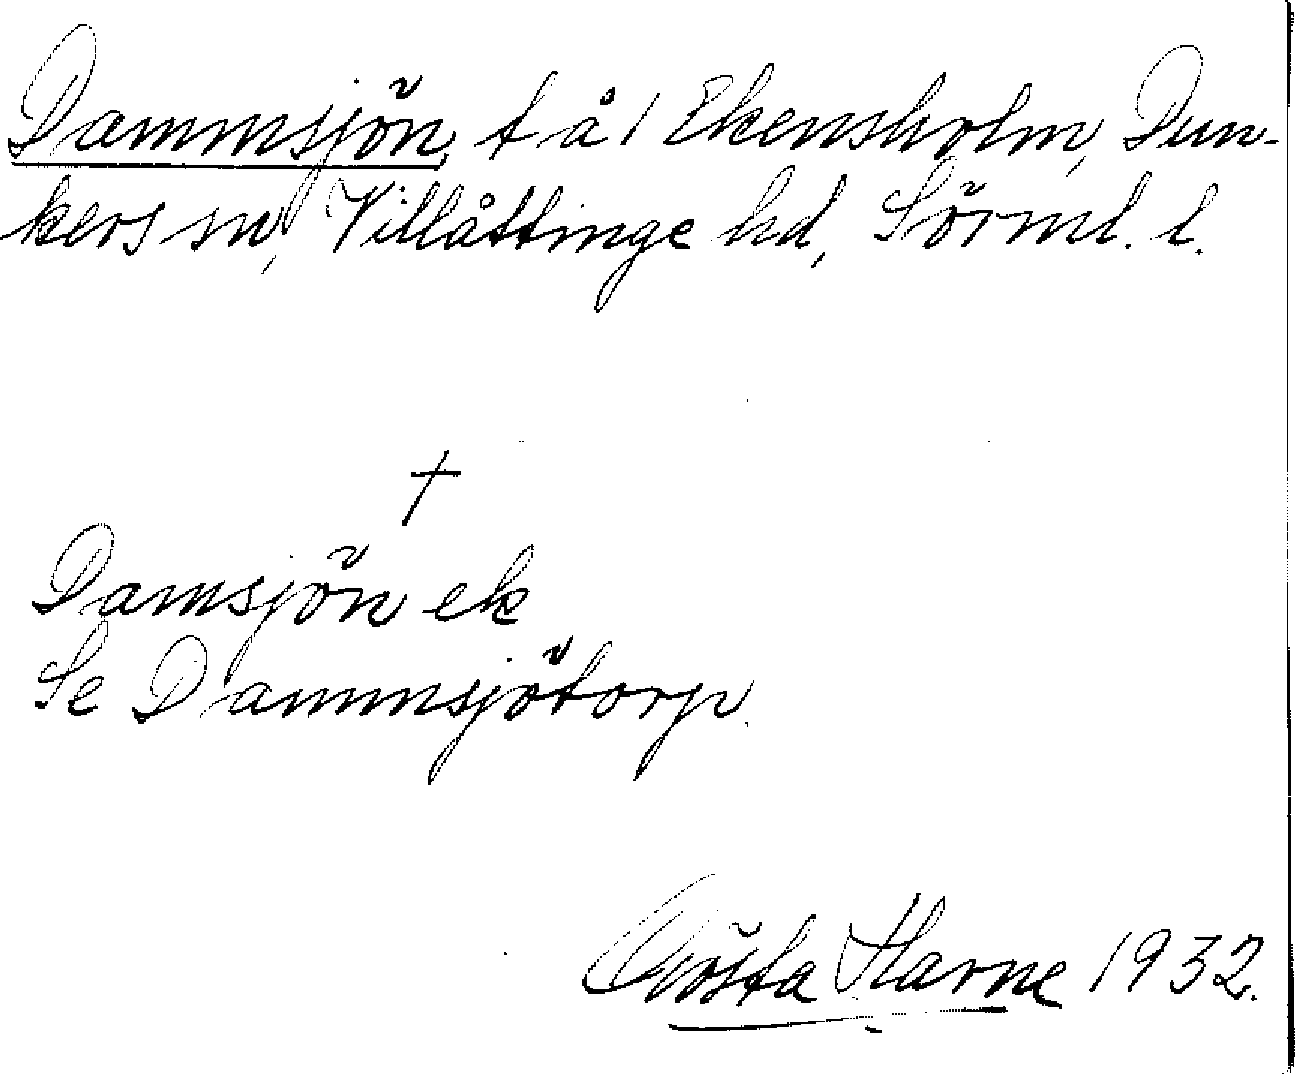 Dammsjön, t å 1 Ekensholm, Dun-
kers sn, Villåttinge hd, Sörml. l.
†
Damsjön ek
Se Dammsjötorp.
Gösta Harne 1932.